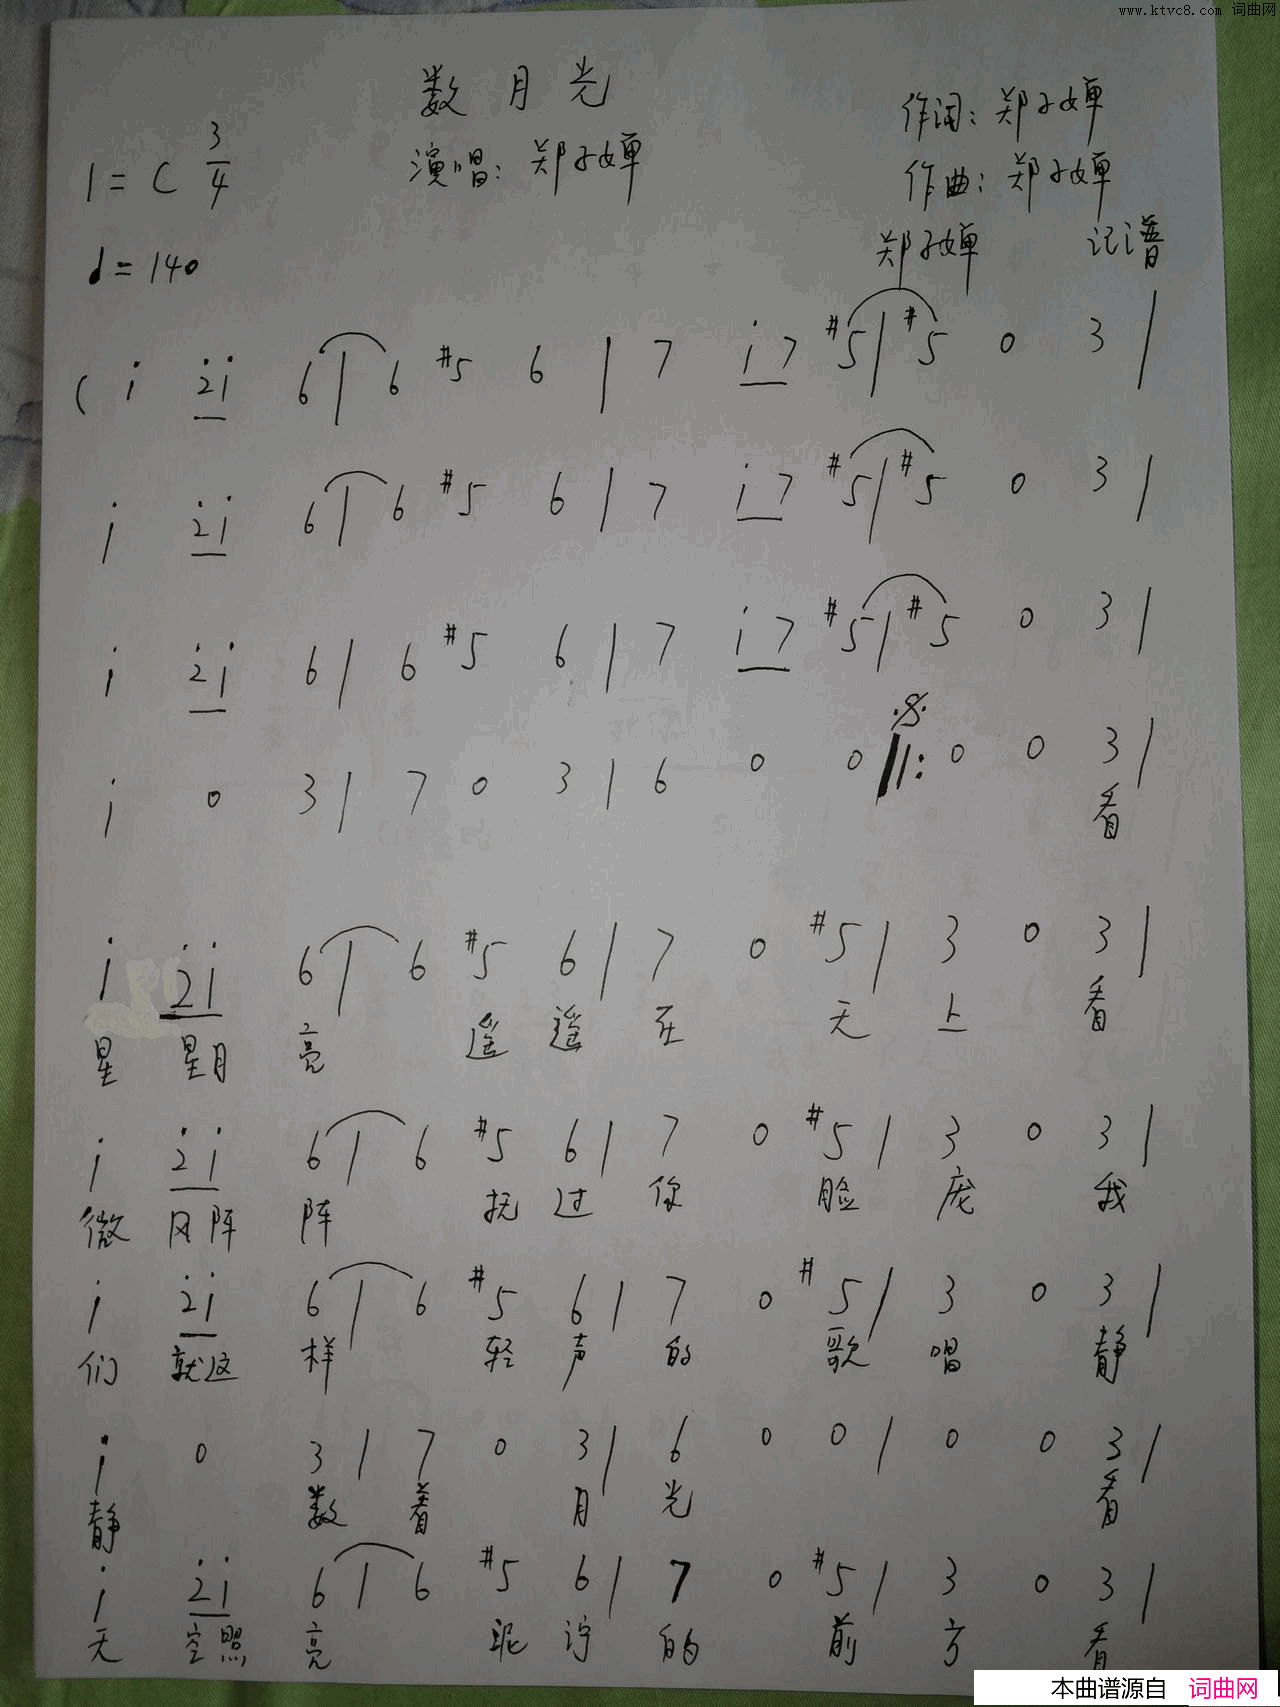 www.ktvc8.com 词曲网
数月光
作词：郑子婵
1=C 3/4
演唱：郑子婵
作曲：郑子婵
♩=140
郑子婵 记谱
( i̇ 2̇i̇ 6 | 6 #5 6 | 7 i̇7 #5 | #5 0 3 |
i̇ 2̇i̇ 6 | 6 #5 6 | 7 i̇7 #5 | #5 0 3 |
i̇ 2̇i̇ 6 | 6 #5 6 | 7 i̇7 #5 | #5 0 3 |
i̇ 0 3 | 7 0 3 | 6 0 0 ‖: 0 0 3 |
看
i̇ 2̇i̇ 6 | 6 #5 6 | 7 0 #5 | 3 0 3 |
星 星月 亮 遥 遥 在 天 上 看
i̇ 2̇i̇ 6 | 6 #5 6 | 7 0 #5 | 3 0 3 |
微 风阵 阵 抚 过 你 脸 庞 我
i̇ 2̇i̇ 6 | 6 #5 6 | 7 0 #5 | 3 0 3 |
们 就这 样 轻 声 的 歌 唱 静
i̇ 0 3 | 7 0 3 | 6 0 0 | 0 0 3 |
静 数 着 月 光 看
i̇ 2̇i̇ 6 | 6 #5 6 | 7 0 #5 | 3 0 3 |
天 空照 亮 泥 泞 的 前 方 看
本曲谱源自 词曲网